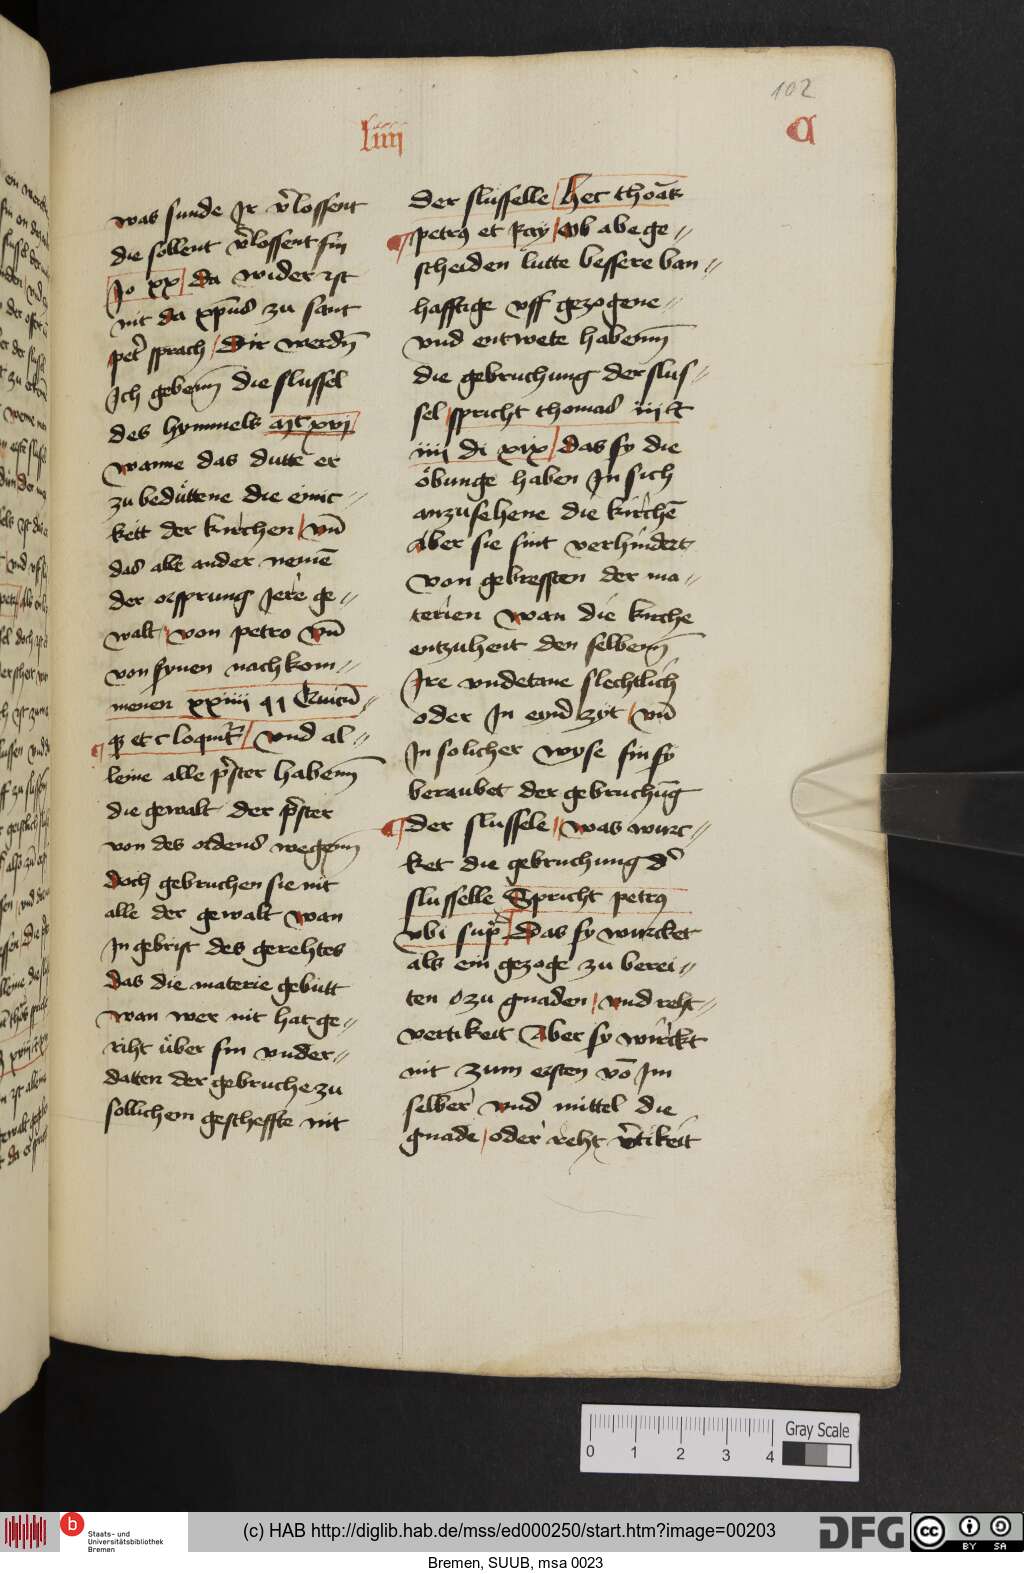 102
liiij
A
was sunde Jr v̓lossent
die sollent v̓lossent sin
Jo xx da wider ist
nit da xp̄us zu sant
pet̓ sprach / Dir werdn̄
Jch gebenn̄ die slussel
des hymmels mt xvi
wanne das dutte er
zu beduͤttene die einic-//
keit der kirchen / vn̄
das alle ander nemē
der orsprung Jere ge-//
walt / von petro vn̄
von synen nachkom-//
menen xxiiij q j Quicū-//
q et c loquit̓ / vnd al-//
leine alle p̓ster habenn̄
die gewalt der p̓ster
von des ordens wegenn̄
doch gebruchen sie nit
alle der gewalt wan
Jn gebrist des gerehtes
das die materie gebutt
wan wer nit hat ge-//
riht uͤber sin vnder-//
datten der gebruche zu
sollichem gescheffte nit
der slusselle / hec thoās
petrꝰ et / Ob abege-//
scheiden lutte bessere ban-//
hafftige vff gezogene-//
vnd entwete habenn̄
die gebruchung der slus-//
sel / spricht thomas
iiij di xix / das sy die
oͤbunge haben Jn sich
anzusehene die kirchē
Aber sie sint verhindert
von gebressten der ma-//
terien wan die kirche
entzuhent den selbenn̄
Jre vndetane slechtlich
oder Jn eynd zyt / vn̄
Jn solicher wyse sin sy
beraubet der gebruchūg
der slussele // was wurc-//
ket die gebruchung d̓
slusselle Spricht petrꝰ
vbi sup̓ / Das sy wurcket
als ein gezoge zu berei-//
ten ozu gnaden / vnd reht-//
vertikeit Aber sy wurckt
nit zum ersten vō Jm
selber vnd mittel die
gnade / oder reht v̓tikeit
0 1 2 3 4
Gray Scale
b
Staats- und
Universitätsbibliothek
Bremen
(c) HAB http://diglib.hab.de/mss/ed000250/start.htm?image=00203
DFG
cc
BY SA
Bremen, SUUB, msa 0023